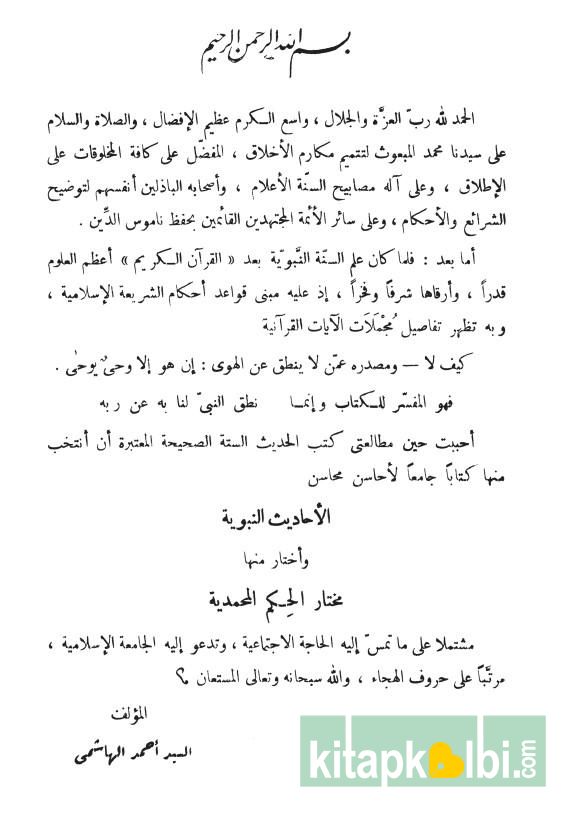 بسم الله الرحمن الرحيم
الحمد لله ربّ العزَّة والجلال ، واسع الكرم عظيم الإفضال ، والصلاة والسلام
على سيدنا محمد المبعوث لتتميم مكارم الأخلاق ، المفضّل على كافة المخلوقات على
الإطلاق ، وعلى آله مصابيح السنّة الأعلام ، وأصحابه الباذلين أنفسهم لتوضيح
الشرائع والأحكام ، وعلى سائر الأئمة المجتهدين القائمين بحفظ ناموس الدِّين .
أما بعد : فلما كان علم السنّة النَّبويّة بعد « القرآن الكريم » أعظم العلوم
قدراً ، وأرقاها شرفاً وفخراً ، إذ عليه مبنى قواعد أحكام الشريعة الإسلامية ،
وبه تظهر تفاصيل مُجْمَلَات الآيات القرآنية
كيف لا — ومصدره عمّن لا ينطق عن الهوى : إن هو إلا وحيٌ يوحى .
فهو المفسّر للكتاب وإنما نطق النبيّ لنا به عن ربه
أحببت حين مطالعتى كتب الحديث الستة الصحيحة المعتبرة أن أنتخب
منها كتاباً جامعاً لأحاسن محاسن
الأحاديث النبوية
وأختار منها
مختار الحِكم المحمدية
مشتملا على ما تمسّ إليه الحاجة الاجتماعية ، وتدعو إليه الجامعة الإسلامية ،
مرتَّباً على حروف الهجاء ، والله سبحانه وتعالى المستعان
المؤلف
السيد أحمد الهاشمى
kitapkalbi.com